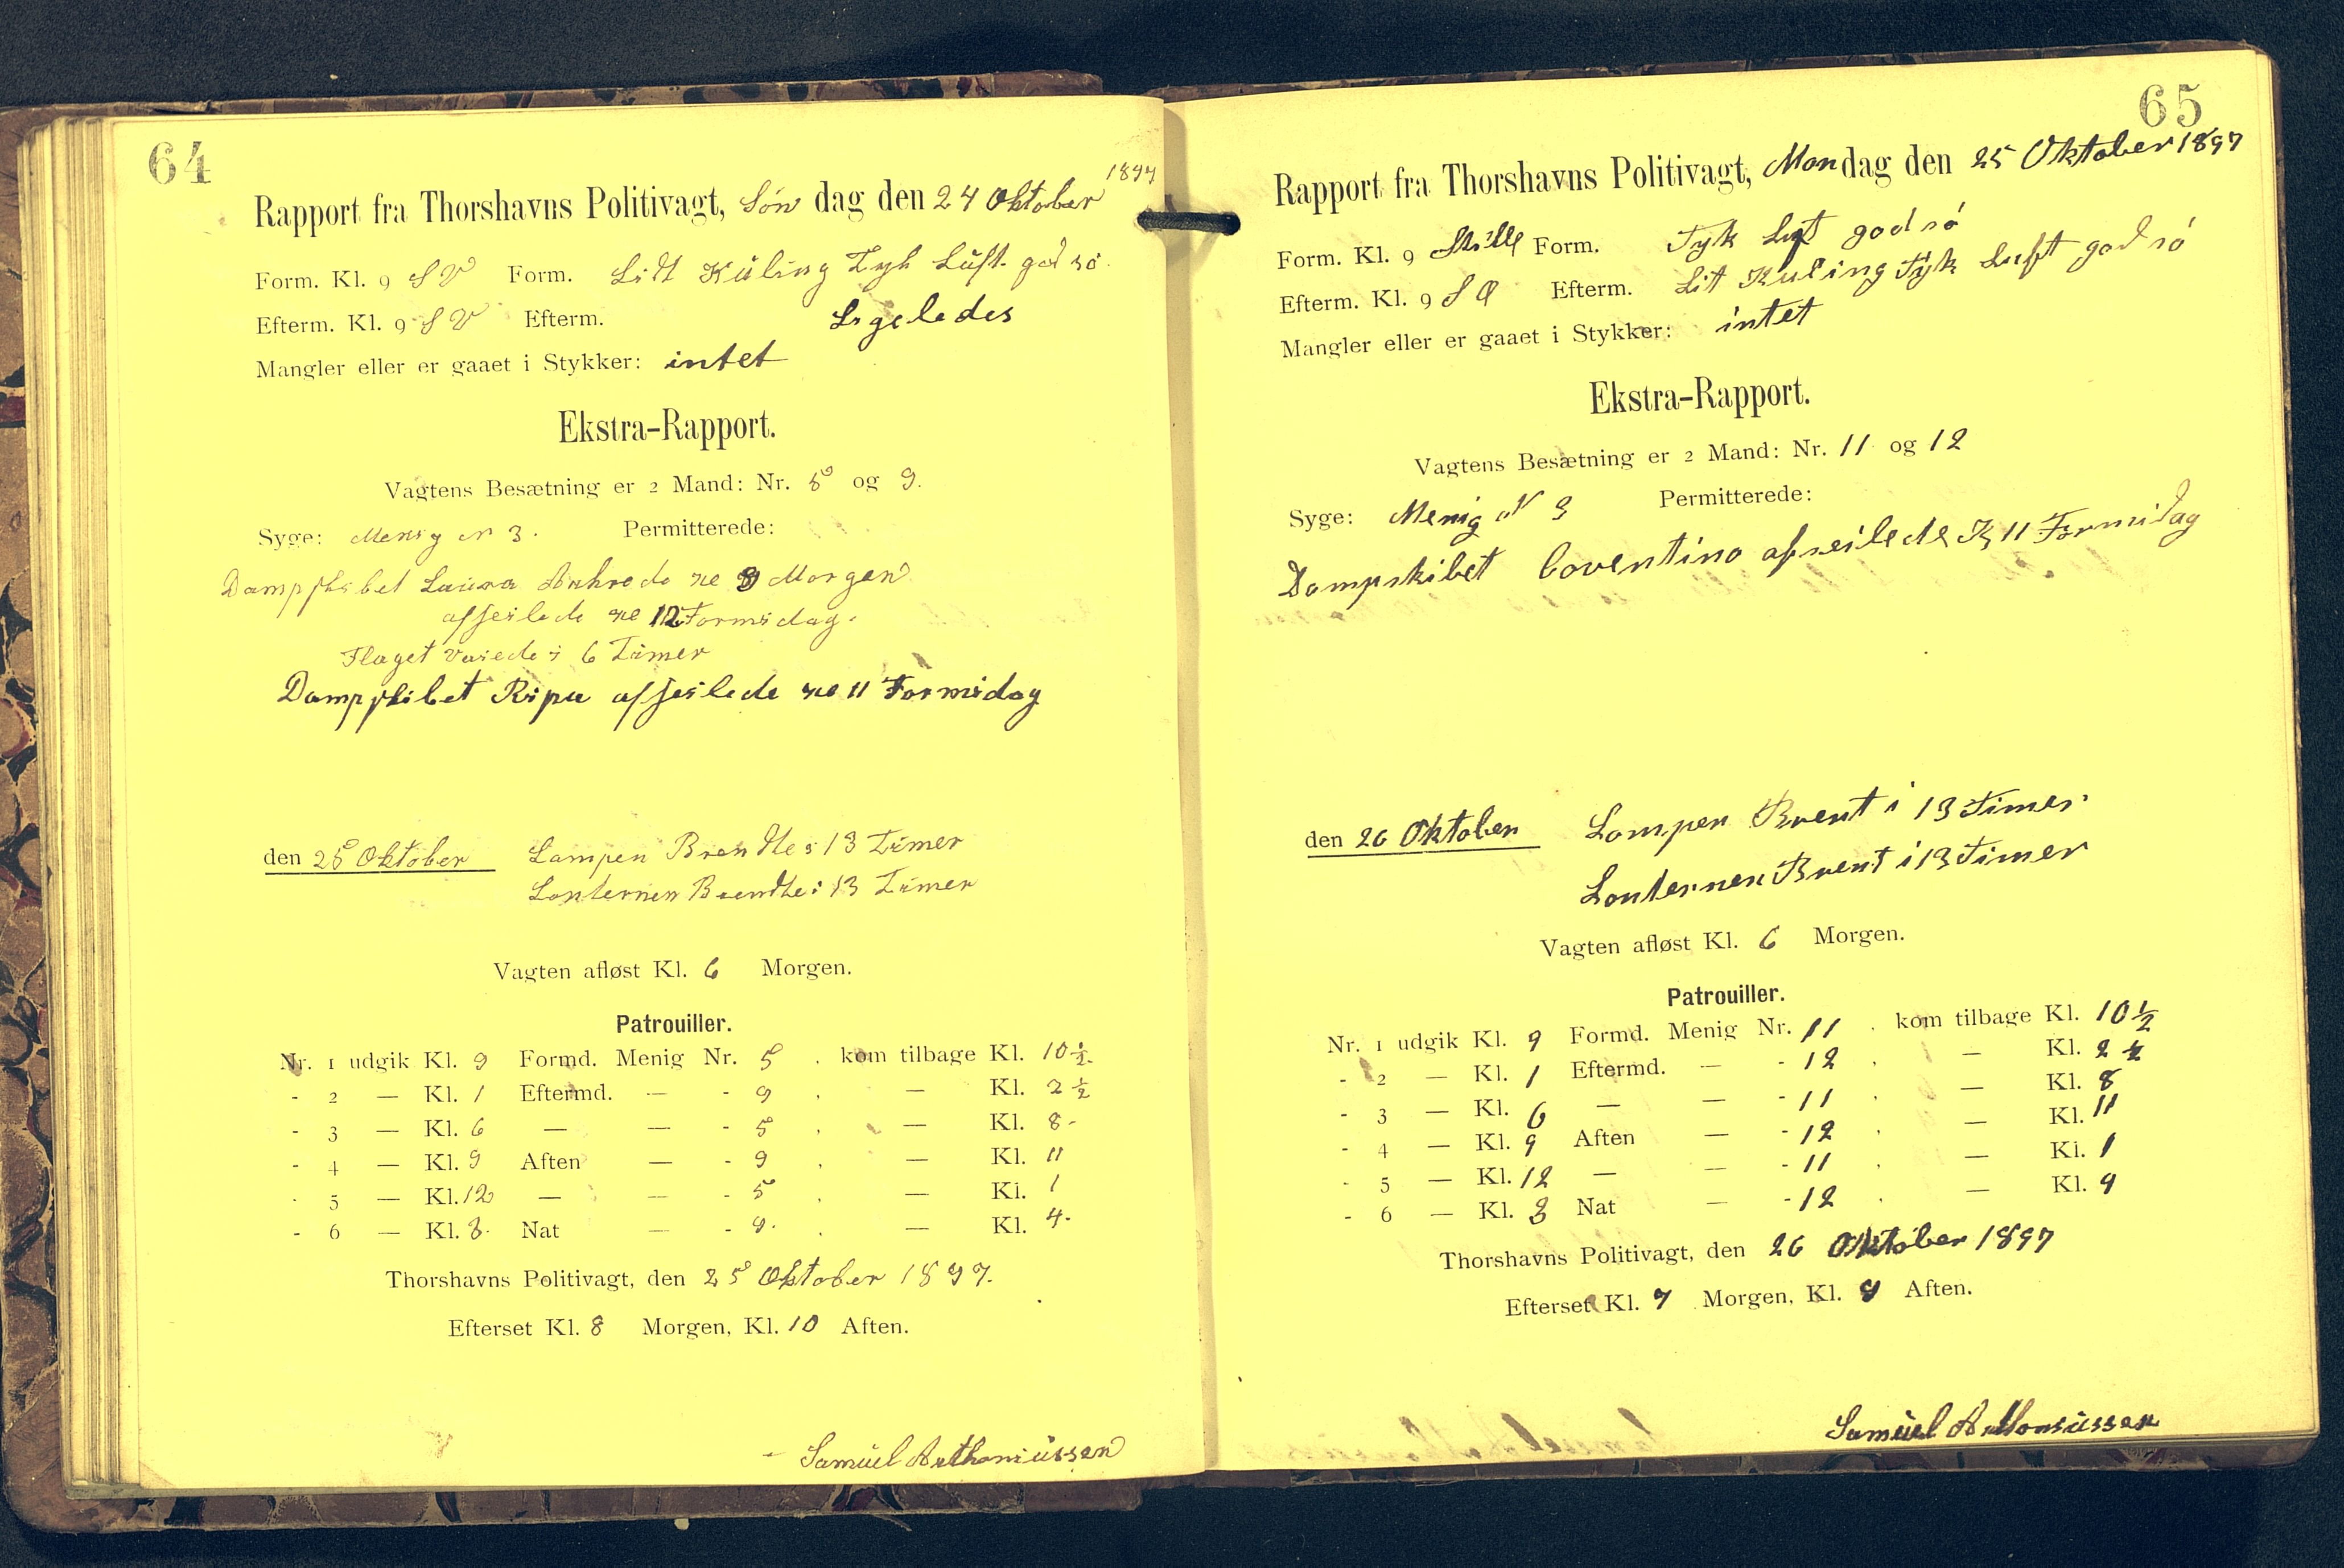 64
Rapport fra Thorshavns Politivagt, Søn dag den 24 Oktober 1897
Form. Kl. 9 S V Form. Lidt Kuling Tyk Luft god sö.
Efterm. Kl. 9 S V Efterm. Ligeledes
Mangler eller er gaaet i Stykker: intet
Ekstra-Rapport.
Vagtens Besætning er 2 Mand: Nr. 5 og 9.
Syge: Menig N 3. Permitterede:
Dampskibet Laura Ankrede Kl 9 Morgen
afseilede Kl 12 Formidag.
Flaget vaiede i 6 Timer
Dampskibet Ripa afseilede Kl 11 Formidag
den 25 Oktober Lampen Brendte i 13 Timer
Lanternen Brendte i 13 Timer
Vagten afløst Kl. 6 Morgen.
Patrouiller.
Nr. 1 udgik Kl. 9 Formd. Menig Nr. 5 . kom tilbage Kl. 10 ½.
- 2 — Kl. 1 Eftermd. — - 9 . — Kl. 2 ½
- 3 — Kl. 6 — — - 5 . — Kl. 8 -
- 4 — Kl. 9 Aften — - 9 . — Kl. 11
- 5 — Kl. 12 — — - 5 . — Kl. 1
- 6 — Kl. 3. Nat — - 9. . — Kl. 4.
Thorshavns Politivagt, den 25 Oktober 1897.
Efterset Kl. 8 Morgen, Kl. 10 Aften.
Samuel Anthoniussen
65
Rapport fra Thorshavns Politivagt, Mondag den 25 Oktober 1897
Form. Kl. 9 Stille Form. Tyk Luft god sö
Efterm. Kl. 9 S Ø Efterm. Lit Kuling Tyk Luft god sö
Mangler eller er gaaet i Stykker: intet
Ekstra-Rapport.
Vagtens Besætning er 2 Mand: Nr. 11 og 12
Syge: Menig N 3 Permitterede:
Dampskibet Coventina afseilede Kl 11 Formidag
den 26 Oktober Lampen Brent i 13 Timer
Lanternen Brent i 13 Timer
Vagten afløst Kl. 6 Morgen.
Patrouiller.
Nr. 1 udgik Kl. 9 Formd. Menig Nr. 11 . kom tilbage Kl. 10 ½
- 2 — Kl. 1 Eftermd. — - 12 . — Kl. 2 ½
- 3 — Kl. 6 — — - 11 . — Kl. 8
- 4 — Kl. 9 Aften — - 12 . — Kl. 11
- 5 — Kl. 12 — — - 11 . — Kl. 1
- 6 — Kl. 3 Nat — - 12 . — Kl. 4
Thorshavns Politivagt, den 26 Oktober 1897
Efterset Kl. 7 Morgen, Kl. 9 Aften.
Samuel Anthoniussen